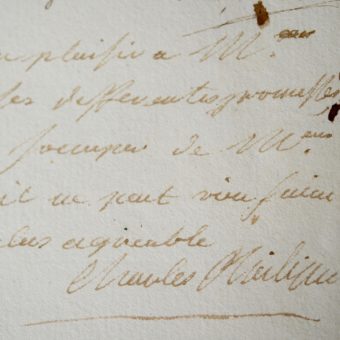 plaisir a M.
les differentes promesses
de M.
il ne peut rien faire
plus agreable
Charles Philippe